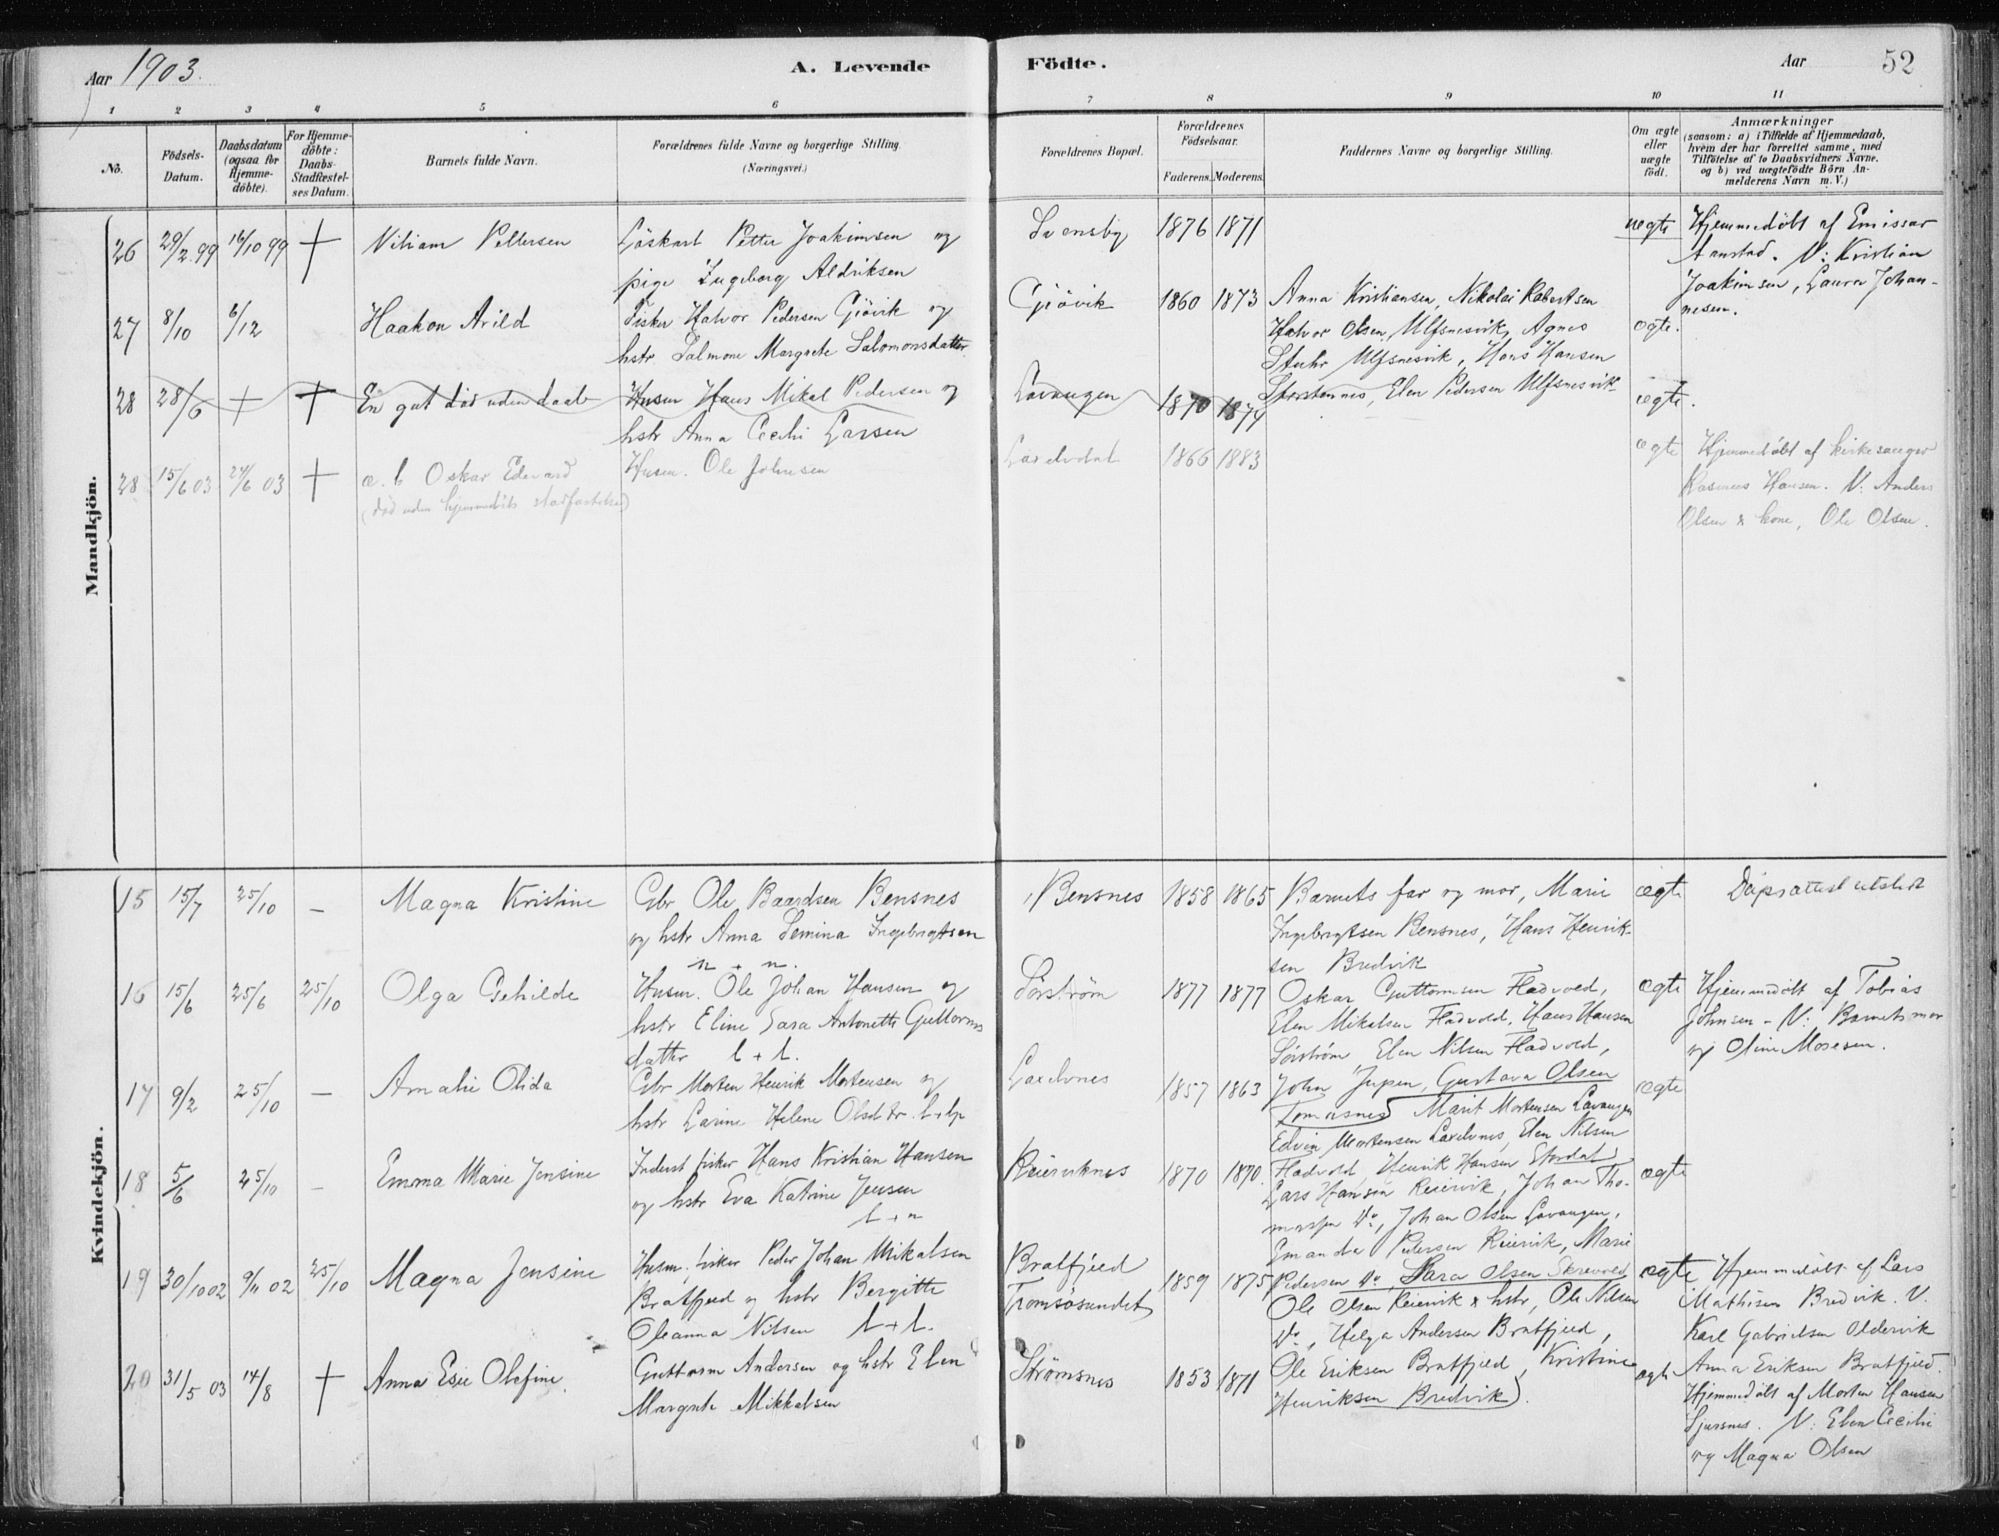 Aar 1903.
A. Levende Födte.
Aar
52
1 2 3 4 5 6 7 8 9 10 11
No.
Födsels-Datum.
Daabsdatum (ogsaa for Hjemmedöbte).
For Hjemmedöbte: Daabs-Stadfæstelses Datum.
Barnets fulde Navn.
Forældrenes fulde Navne og borgerlige Stilling.
(Næringsvei.)
Forældrenes Bopæl.
Forældrenes Födselsaar.
Faderens. Moderens.
Faddernes Navne og borgerlige Stilling.
Om ægte eller uægte födt.
Anmærkninger
(saasom: a) i Tilfælde af Hjemmedaab, hvem der har forrettet samme, med Tilföielse af to Daabsvidners Navne, og b) ved uægtefödte Börn Anmelderens Navn m.V.)
Mandkjön.
26 29/2 99 16/10 99 + Viliam Pettersen
Petter Joakimsen og
pige Ingeborg Aldriksen
Svensby 1876 1871 uegte
Hjemmedöbt af Emissær
Aanstad. V: Kristian
Joakimsen, Laura Johan-
nesen.
27 8/10 6/12 Haakon Arild
Fisker Halvor Pedersen Gjövik og
hstr Salmone Margrete Salomonsdatter
Gjövik 1860 1873
Anna Kristiansen, Nikolai Robertsen
Halvor Olsen, Ulfsnesvik, Agnes
Stuhr Ulfsnesvik, Hans Hansen
Storstennes, Elen Pedersen Ulfsnesvik
egte.
28 28/6 + + En gut död uden daab
Husm Hans Mikal Pedersen og
hstr Anna Cecili Larsen
Lavangen 1870 1874 ægte.
28 15/6 03 24/6 03 + Oskar Edvard
(död uden hjemmedöbts stadfæstelse)
Husm. Ole Johnsen
Laxelvdal 1866 1883 egte
Hjemmedöbt af kirkesanger
Rasmus Hansen. V. Anders
Olsen & kone, Ole Olsen.
Kvindekjön.
15 15/7 25/10 — Magna Kristine
Gbr Ole Baardsen Bensnes
og hstr Anna Semina Ingebrigtsen
n + n.
Bensnes 1858 1865
Barnets far og mor, Marie
Ingebrigtsen Bensnes, Hans Henrik-
sen Bredvik
ægte
Dåpsattest utstedt
16 15/6 25/6 25/10 Olga Gehilde
Husm. Ole Johan Hansen og
hstr Eline Sara Antonette Guttorms
datter l + l.
Sörström 1877 1877
Oskar Guttormsen Fladvold,
Elen Mikalsen Fladvold, Hans Hansen
Sörström Elen Nilsen Fladvold,
egte
Hjemmedöbt af Tobias
Johnsen - V: Barnets mor
og Oline Mosesen.
17 9/2 25/10 — Amalie Olida
Gbr Morten Henrik Mortensen og
hstr Larine Helene Olsdtr.
Laxelvnes 1857 1863
John Jupen, Gustava Olsen
Tomasnes, Marit Mortensen Lavangen
Edvin Mortensen Laxelvnes, Elen Nilsen
Fladvold, Henrik Hansen
egte
18 5/6 25/10 — Emma Marie Jensine
Inderst fisker Hans Kristian Hansen
og hstr Eva Katrine Jensen
l + n
Reiervknes 1870 1870.
Lars Hansen Reiervik, Johan Tho-
massen Do, Johan Olsen Lavangen,
Emanda Pedersen Reiervik, Marie
Pedersen Do, Sara Olsen Skrevold
ægte
19 30/10 02 9/11 02 25/10 Magna Jensine
Husm, fisker Peder Johan Mikalsen
Bratfjeld og hstr Bergitte
Oleanna Nilsen l + l.
Bratfjeld
Tromsösundet 1859 1875
Ole Olsen Reiervik & hstr, Ole Nilsen
Do, Helga Andersen Bratfjeld,
Ole Eriksen Bratfjeld, Kristine
Henriksen Bredvik.
egte
Hjemmedöbt af Lars
Mathisen Bredvik. V.
Karl Gabrielsen Oldervik
Anna Eriksen Bratfjeld.
20 31/5 03 14/8 + Anna Esie Olefine.
Guttorm Andersen og hstr Elen
Margrete Mikkalsen
Strømsnes 1853 1871 egte
Hjemmedöbt af Morten Hansen
Sjursnes. V: Elen Cecilie
og Magna Olsen